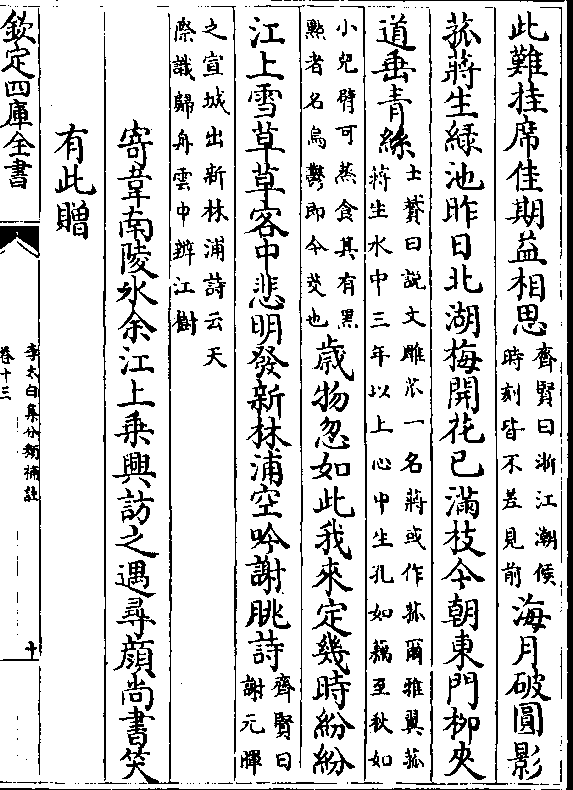 此難挂席佳期益相思齊賢曰浙江潮候
時刻皆不差見前海月破圓影
菰蔣生綠池昨日北湖梅開花已滿枝今朝東門栁夾
道垂青絲士贇曰説文雕苽一名蔣或作菰爾雅翼菰
蔣生水中三年以上心中生孔如藕至秋如
小兒臂可蒸食其有黒
㸃者名烏鬱即今茭也歳物忽如此我來定幾時紛紛
江上雪草草客中悲明發新林浦空吟謝朓詩齊賢曰
謝元暉
之宣城出新林浦詩云天
際識歸舟雲中辨江樹
寄韋南陵氷余江上乘興訪之遇尋顔尚書笑
有此贈
欽定四庫全書
李太白集分類補註
卷十三
十